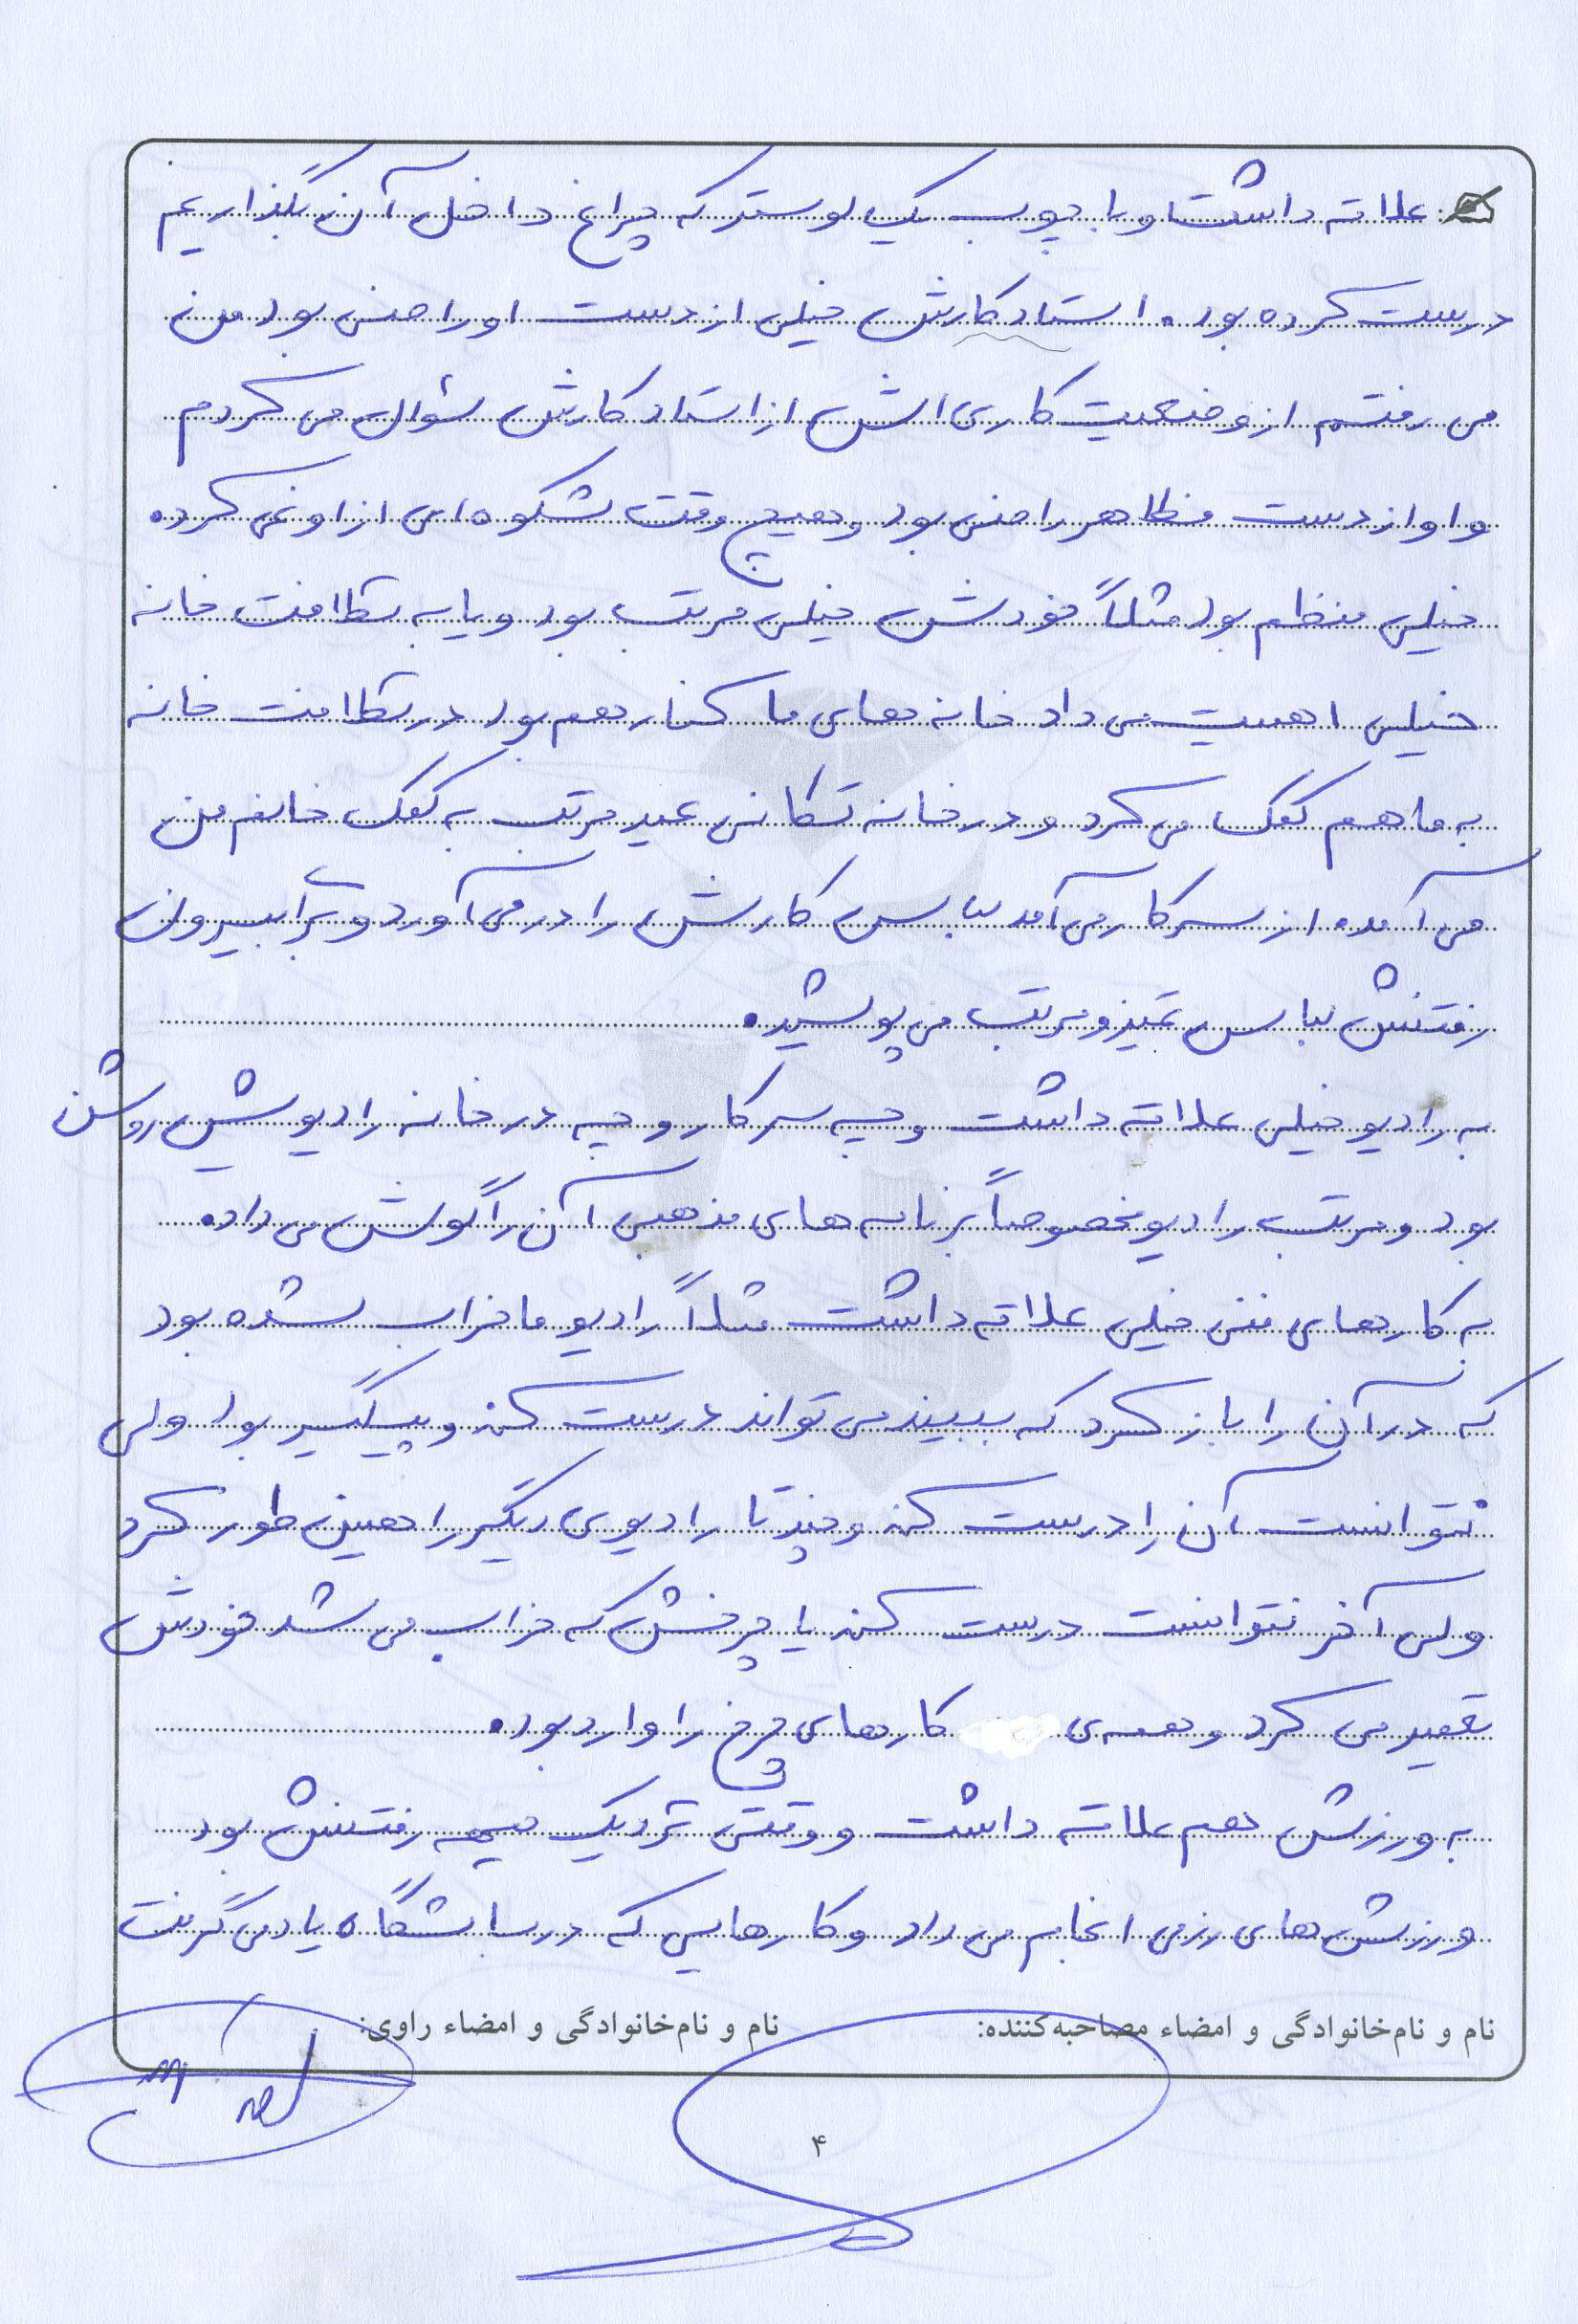 علاقه داشت و با چوب یک لوستر که چراغ داخل آن بگذاریم
درست کرده بود. استاد کارش خیلی از دست او راضی بود من
می رفتم از وضعیت کاری اش از استاد کارش سئوال می کردم
و او از دست مظاهر راضی بود و هیچ وقت شکوه ای از او نمی کرد.
خیلی منظم بود مثلاً خودش خیلی مرتب بود و یا به نظافت خانه
خیلی اهمیت می داد خانه های ما کنار هم بود در نظافت خانه
به ما هم کمک می کرد و در خانه تکانی عید مرتب به کمک خانم من
می آمد. از سر کار می آمد لباس کارش را در می آورد و برا بیرون
رفتنش لباس تمیز و مرتب می پوشید.
به رادیو خیلی علاقه داشت و چه سر کار و چه در خانه رادیوش روشن
بود و مرتب رادیو مخصوصاً برنامه های مذهبی آن را گوش می داد.
به کارهای فنی خیلی علاقه داشت مثلاً رادیو ما خراب شده بود
که در آن را باز کرد که ببیند می تواند درست کند و پیگیر بود ولی
نتوانست آن را درست کند و چند تا رادیوی دیگر را همین طور کرد
ولی آخر نتوانست درست کند یا چرخش که خراب می شد خودش
تعمیر می کرد و همه ی کارهای چرخ را وارد بود.
به ورزش هم علاقه داشت و وقتی نزدیک جبهه رفتنش بود
ورزش های رزمی انجام می داد و کارهایی که در باشگاه یاد می گرفت
نام و نام‌خانوادگی و امضاء مصاحبه‌کننده: نام و نام‌خانوادگی و امضاء راوی:
۴